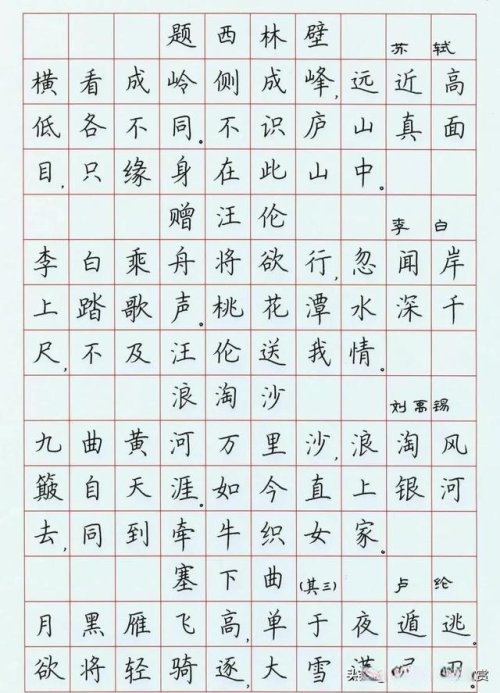 题西林壁 苏轼
横看成岭侧成峰,远近高
低各不同。不识庐山真面
目,只缘身在此山中。
赠汪伦 李白
李白乘舟将欲行,忽闻岸
上踏歌声。桃花潭水深千
尺,不及汪伦送我情。
浪淘沙 刘禹锡
九曲黄河万里沙,浪淘风
簸自天涯。如今直上银河
去,同到牵牛织女家。
塞下曲(其三) 卢纶
月黑雁飞高,单于夜遁逃。
欲将轻骑逐,大雪满